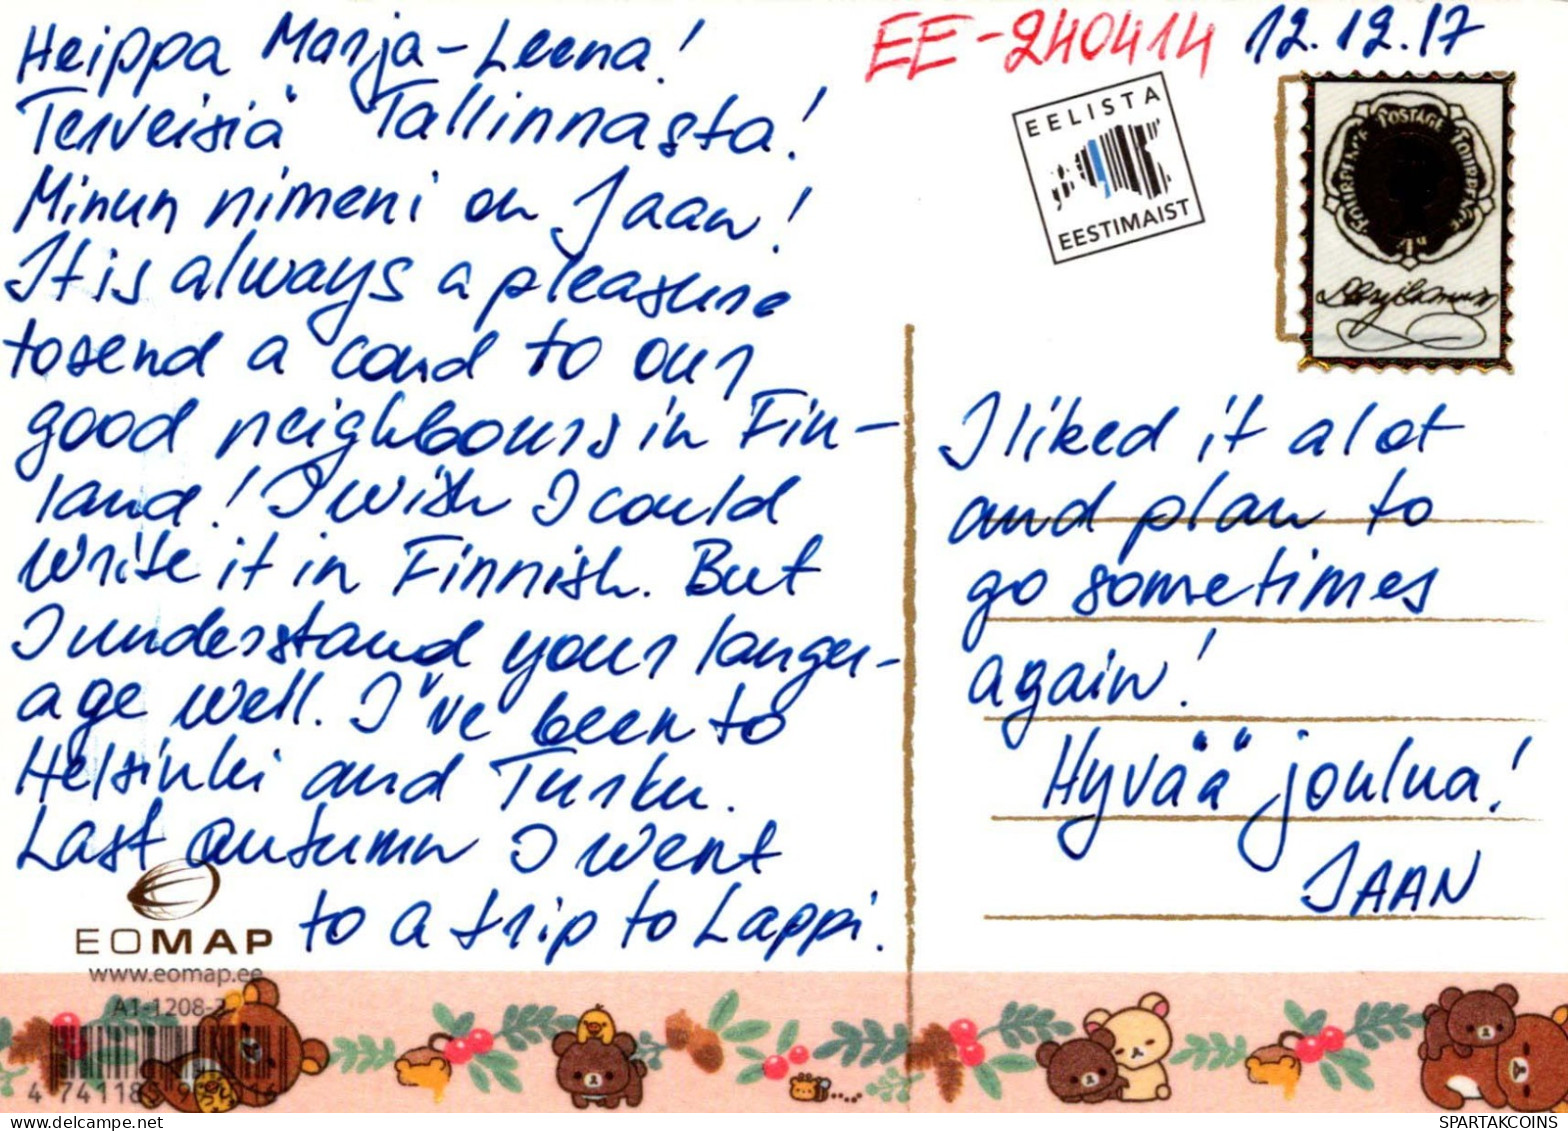 Heippa Marja-Leena!
Terveisiä Tallinnasta!
Minun nimeni on Jaan!
It is always a pleasure
to send a card to our
good neighbours in Fin-
land! I wish I could
write it in Finnish. But
I understand your langu-
age well. I've been to
Helsinki and Turku.
Last autumn I went
to a trip to Lappi.
EOMAP
www.eomap.ee
A1-1208-3
EE-240414 12.12.17
EELISTA
EESTIMAIST
POSTAGE
FOURPENCE
4D
I liked it a lot
and plan to
go sometimes
again!
Hyvää joulua!
JAAN
SPARTAKCOINS